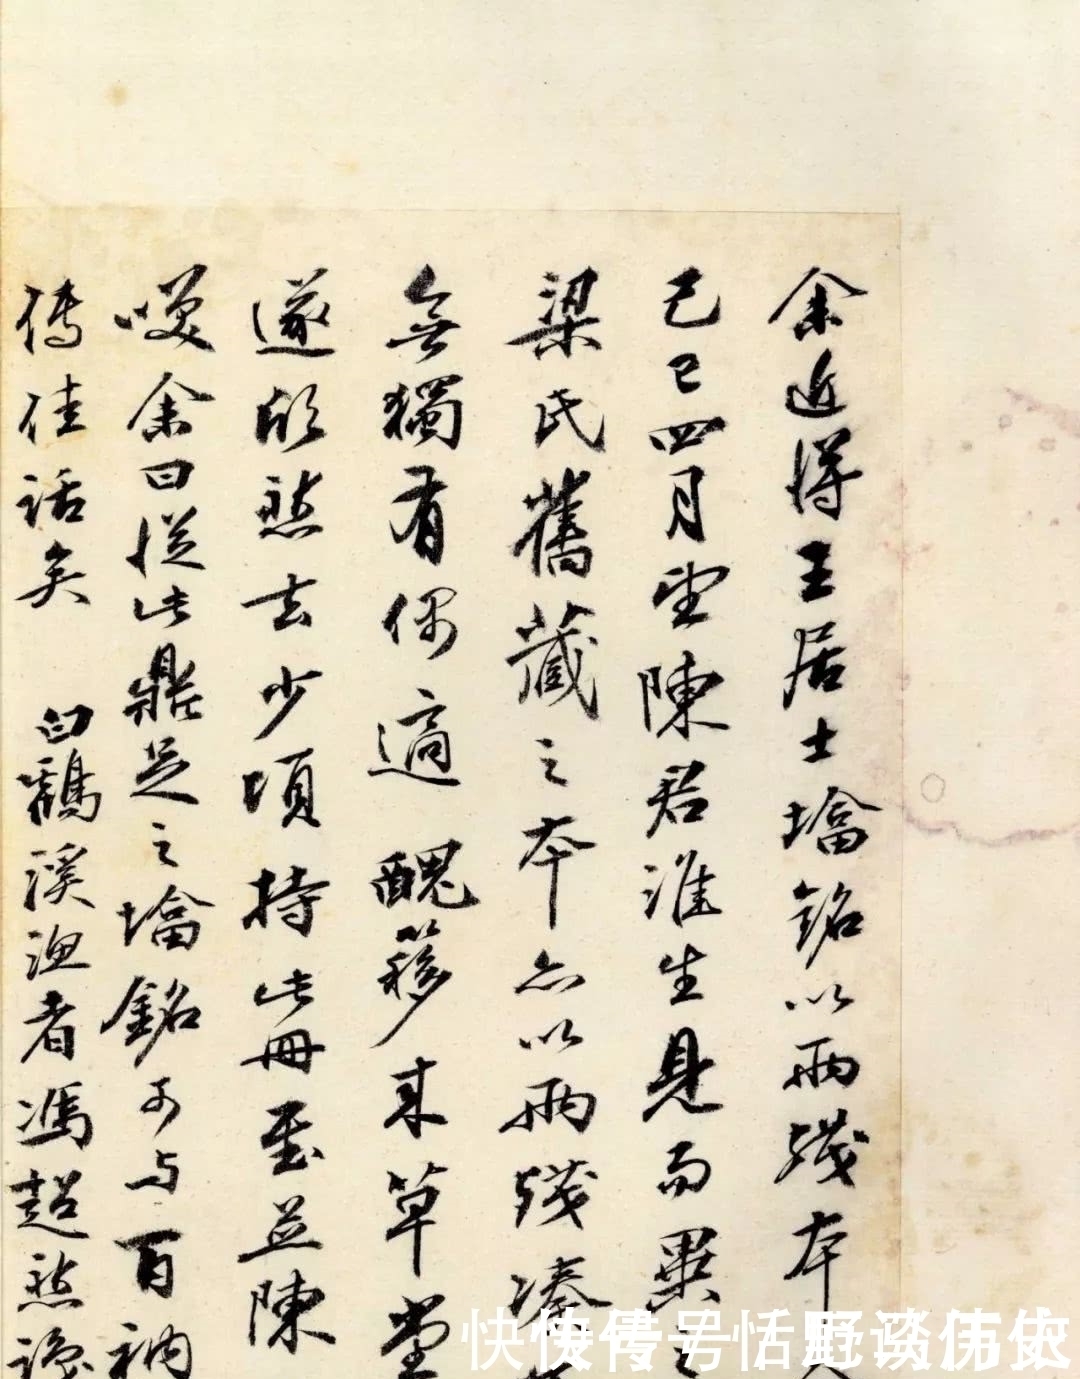 余近得王居士塼銘以兩殘本
己巳四月望陳君淮生見而異之
梁氏舊藏之本亦以兩殘湊
無獨有偶適醜簃來草堂
遂欣然去少頃持此冊至並陳
嘆余曰從此鼎足之塼銘可与百衲
傳佳話矣 白鸘溪漁者馮超然識